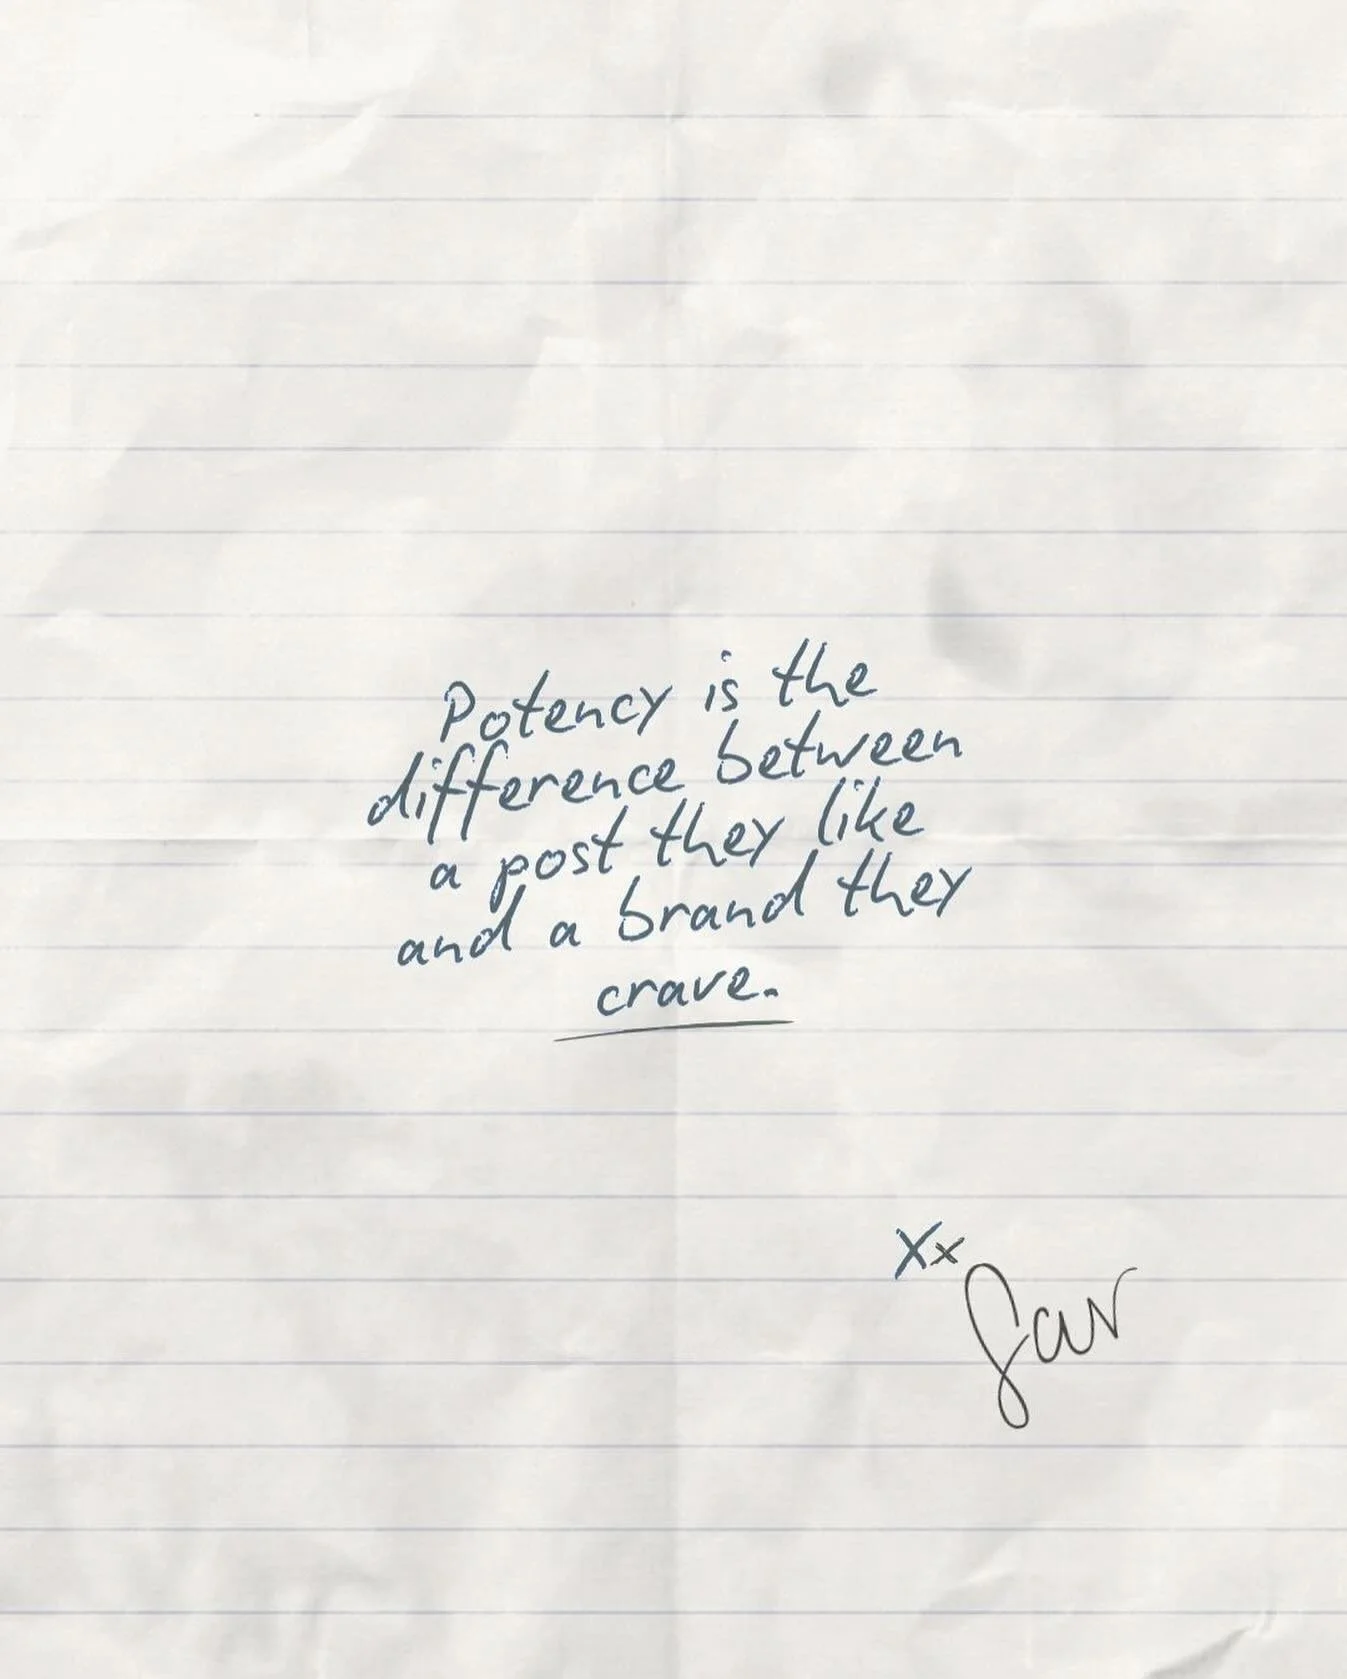 Potency is the
difference between
a post they like
and a brand they
crave.
Xx
Sar